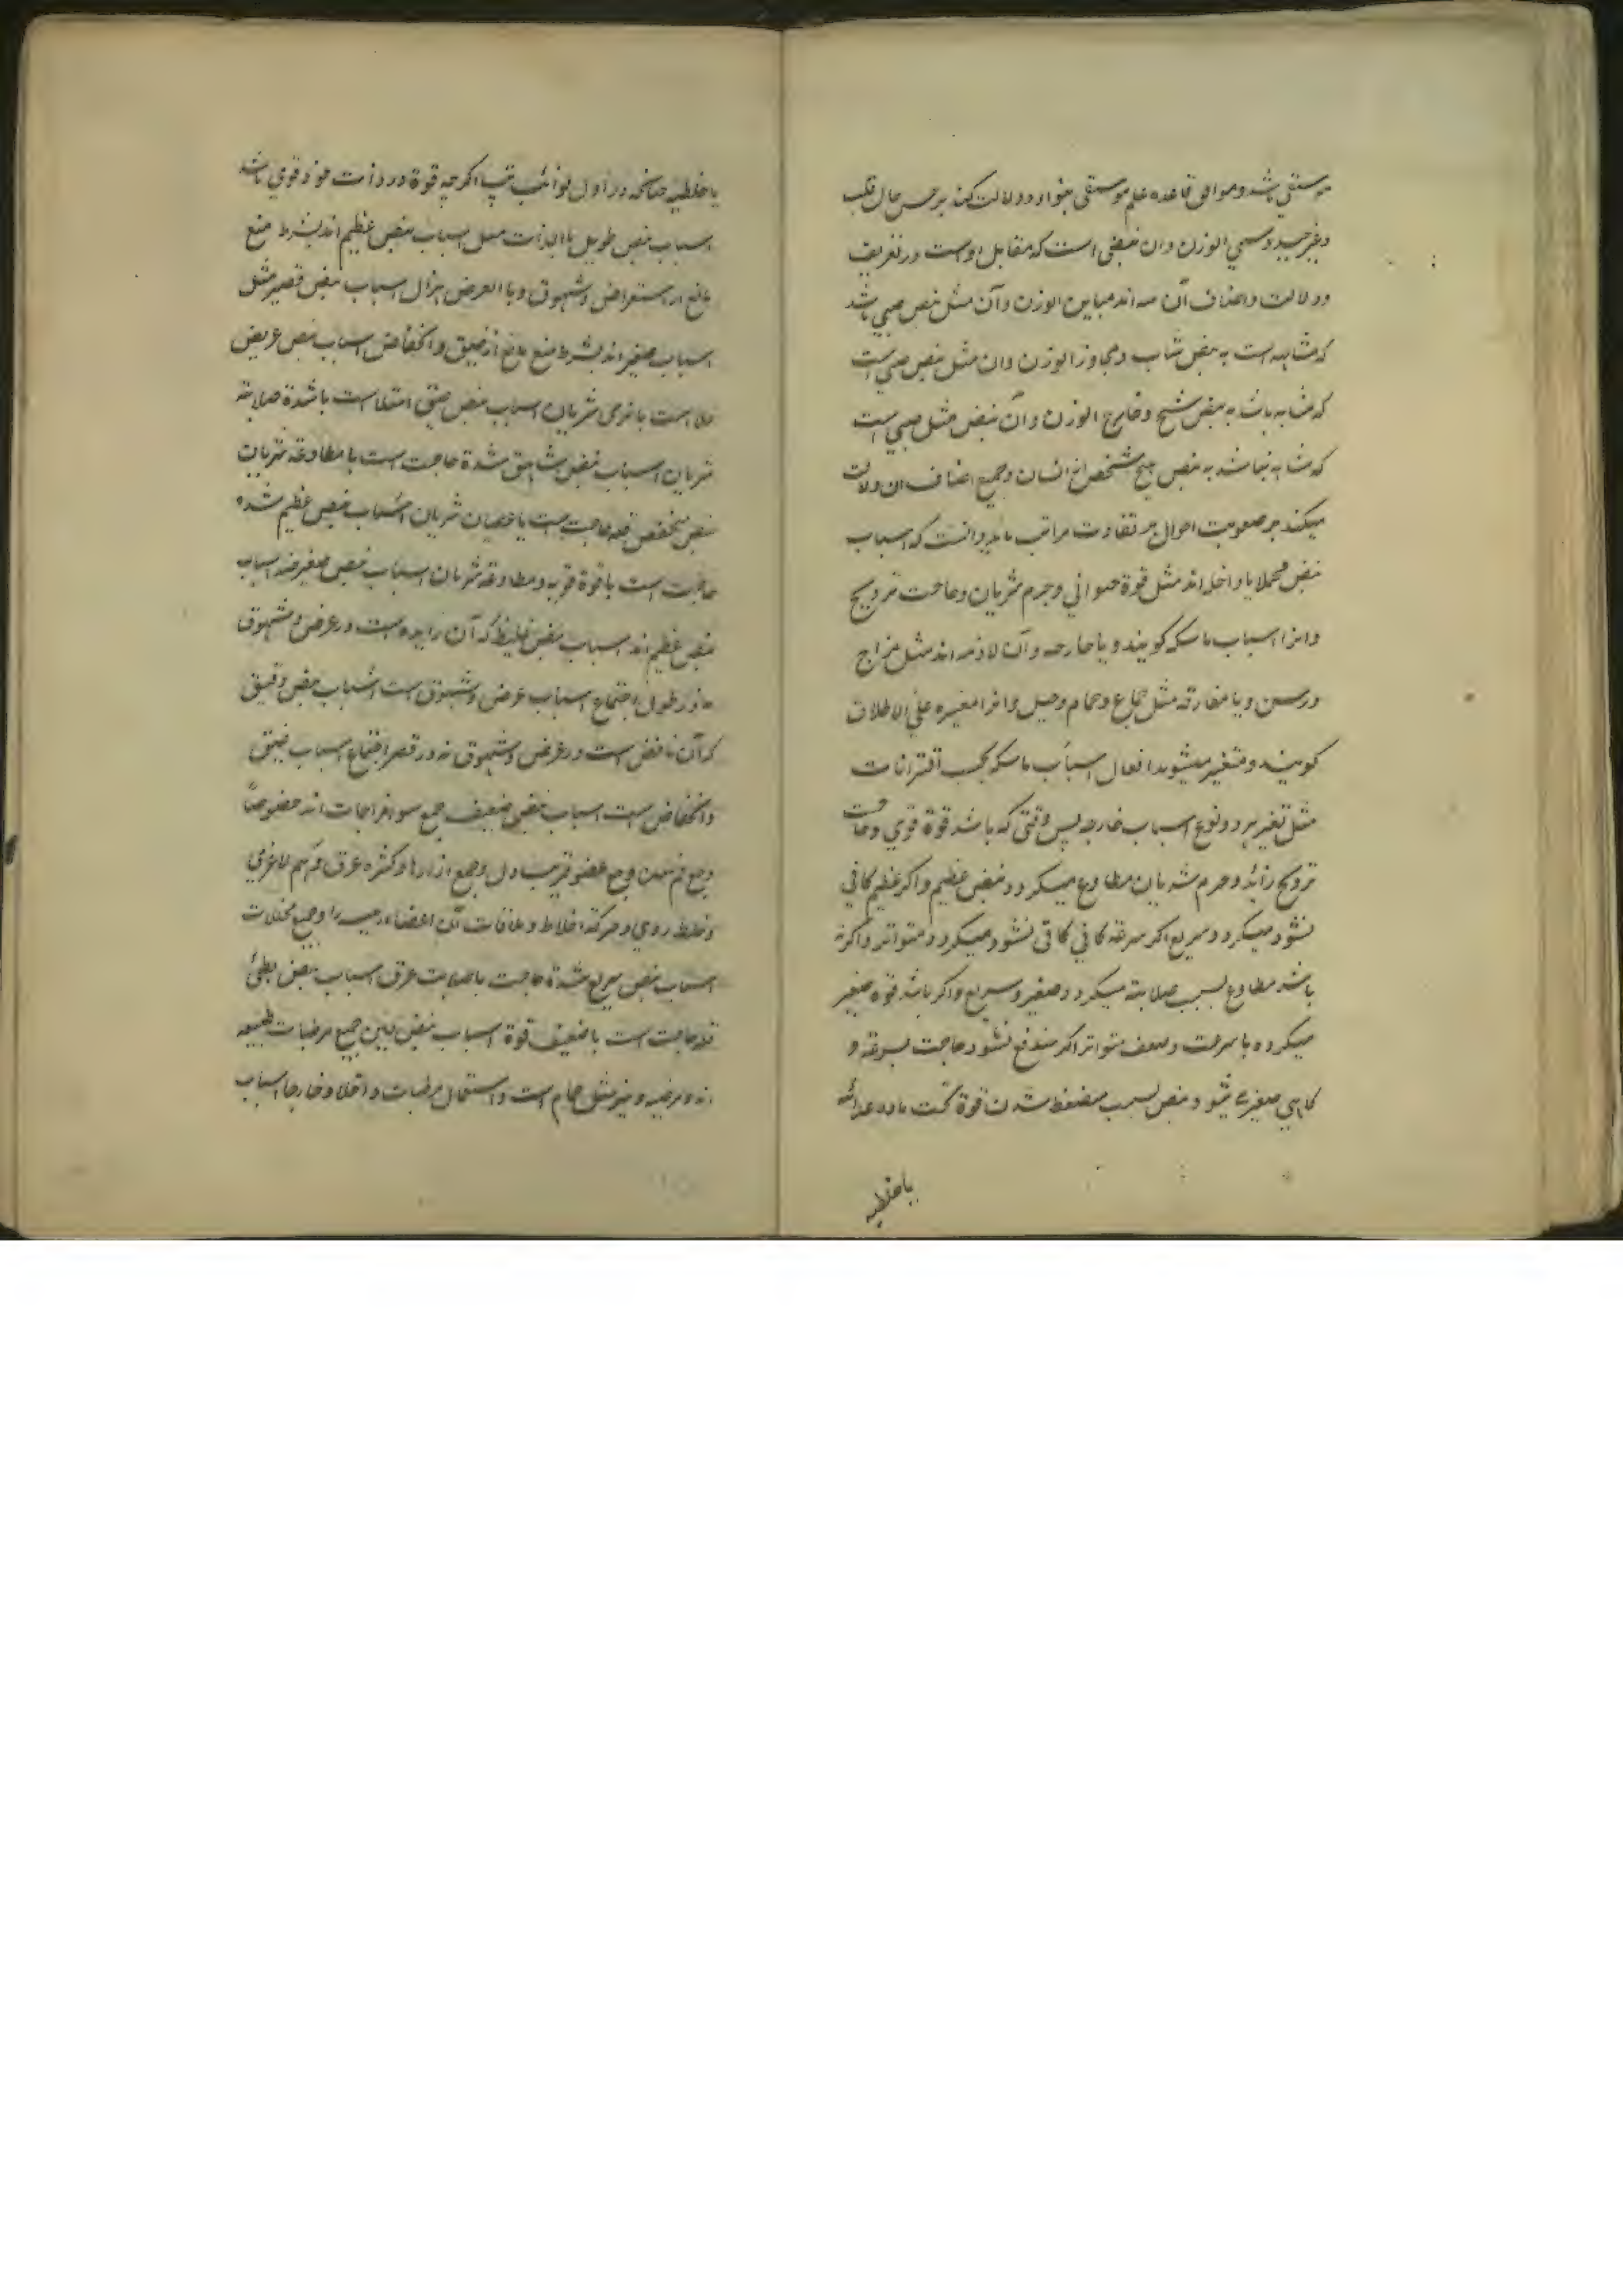 موسیقی باشد و موافق قاعده علم موسیقی بنوازد و دلالت کند بر حسن حال قلب
و غیر جید و سیی الوزن و ان نبضی است که مقابل اوست در تعریف
و دلالت و اصناف آن سه اند مباین الوزن و آن مثل نبض صبی باشد
که مشابه است به نبض شاب و مجاوز الوزن و ان مثل نبض صبی است
که مشابه باشد به نبض شیخ و خارج الوزن و آن نبض مثل صبی است
که مشابه نباشد به نبض هیچ شخص از انسان و جمیع اصناف ان دلالت
میکند بر صعوبت احوال بر تفاوت مراتب باید دانست که اسباب
نبض مجملا یا داخل اند مثل قوة حیوانی و جرم شریان و حاجت ترویح
و انرا اسباب ماسکه کویند و یا خارجه و آن لازمه اند مثل مزاج
و سن و یا مفارقه مثل جماع و حمام و حبل و انرا مغیره علی الاطلاق
کویند و متغیر میشوند افعال اسباب ماسکه بحسب اقترانات
مثل تغیر هر دو نوع اسباب خارجه پس وقتی که باشد قوة قوی و حاجت
ترویح زائد و جرم شریان مطاوع میکردد نبض عظیم و اکر عظیم کافی
نشود میکردد سریع اکر سرعة کافی نشود میکردد متواتر و اکر نه
باشد مطاوع بسبب صلابته میکردد صغیر و سریع و اکر باشد قوة صغیر
میکردد با سرعت و ضعف متواتر اکر مندفع نشود حاجت بسرعة و
کاهی صغیر میشود نبض بسبب منضغط شدن قوة تحت ماده غدائیه
یا خلطیه
یا خلطیه چنانکه در اول نوائب تپ اکرچه قوة در ذات خود قوی باشد
اسباب نبض طویل یا بالذات مثل اسباب نبض عظیم اند بشرط منع
مانع از استعراض و شهوق و یا بالعرض هزال اسباب نبض قصیر مثل
اسباب صغیر اند بشرط منع مانع از ضیق و انخفاض اسباب نبض عریض
خلا است یا نرمی شریان اسباب نبض ضیق امتلا است یا شدة صلابة
شریان اسباب نبض شاهق شدة حاجت است با مطاوعة شریان
نبض منخفض قلة حاجت است یا عصیان شریان اسباب نبض عظیم شدة
حاجت است با قوة قویه و مطاوعة شریان اسباب نبض صغیر ضد اسباب
نبض عظیم اند اسباب نبض غلیظ که آن زایده است در عرض و شهوق
نه در طول اجتماع اسباب عرض و شهوق است اسباب نبض دقیق
که آن ناقص است در عرض و شهوق نه در قصر اجتماع اسباب ضیق
و انخفاض است اسباب نبض ضعیف جمیع سوء مزاجات اند خصوصاً
وجع فم معده و وجع عضو قریب دل و جمیع اورام و کثرة عرق و هم لاغری
و خلط ردی و حرکة اخلاط و ملاقات آن اعضاء رئیسه را و جمیع محللات
اسباب نبض سریع شدة حاجت با صلابت عرق اسباب نبض بطئ
قلة حاجت است یا ضعف قوة اسباب نبض لین جمیع مرطبات طبیعیه
اند و مرضیه و غیر مثل حمام است و استعمال مرطبات داخلا و خارجا اسباب